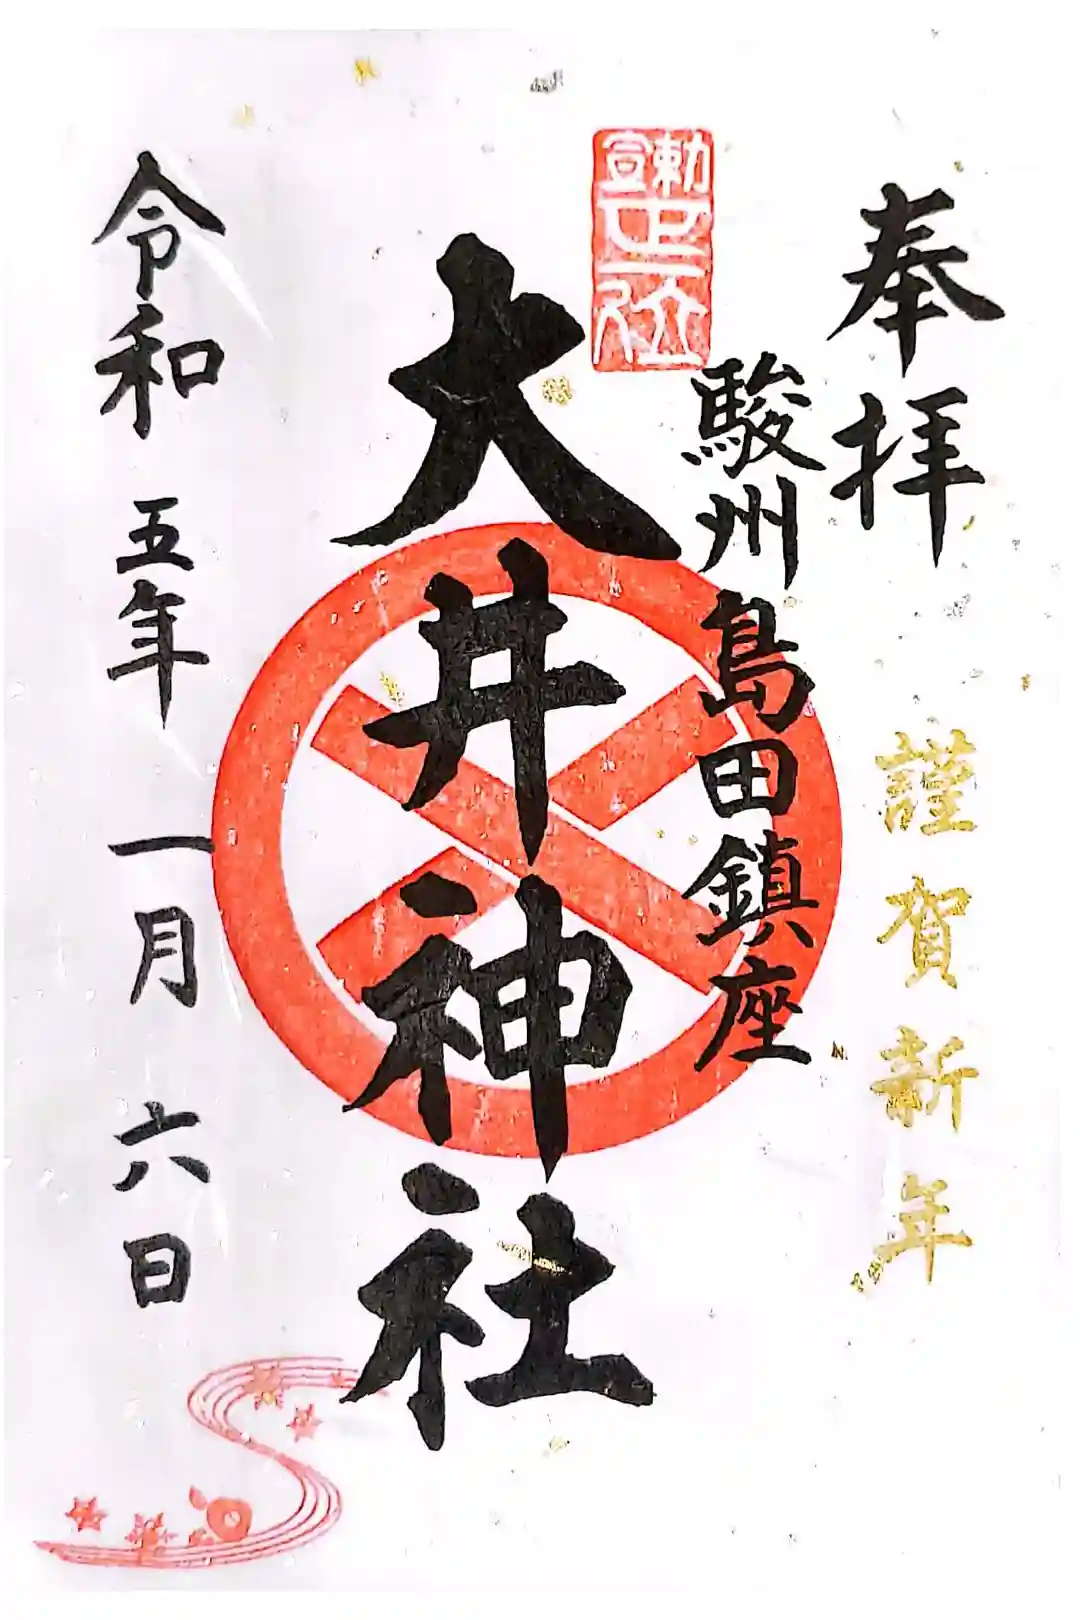 奉拝
謹賀新年
勅宣
正一位
駿州島田鎮座
大井神社
令和五年一月六日